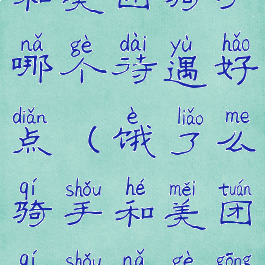 和美团骑手
nǎ gè dài yù hǎo
哪个待遇好
diǎn è liǎo me
点（饿了么
qí shǒu hé měi tuán
骑手和美团
qí shǒu nǎ gè gōng